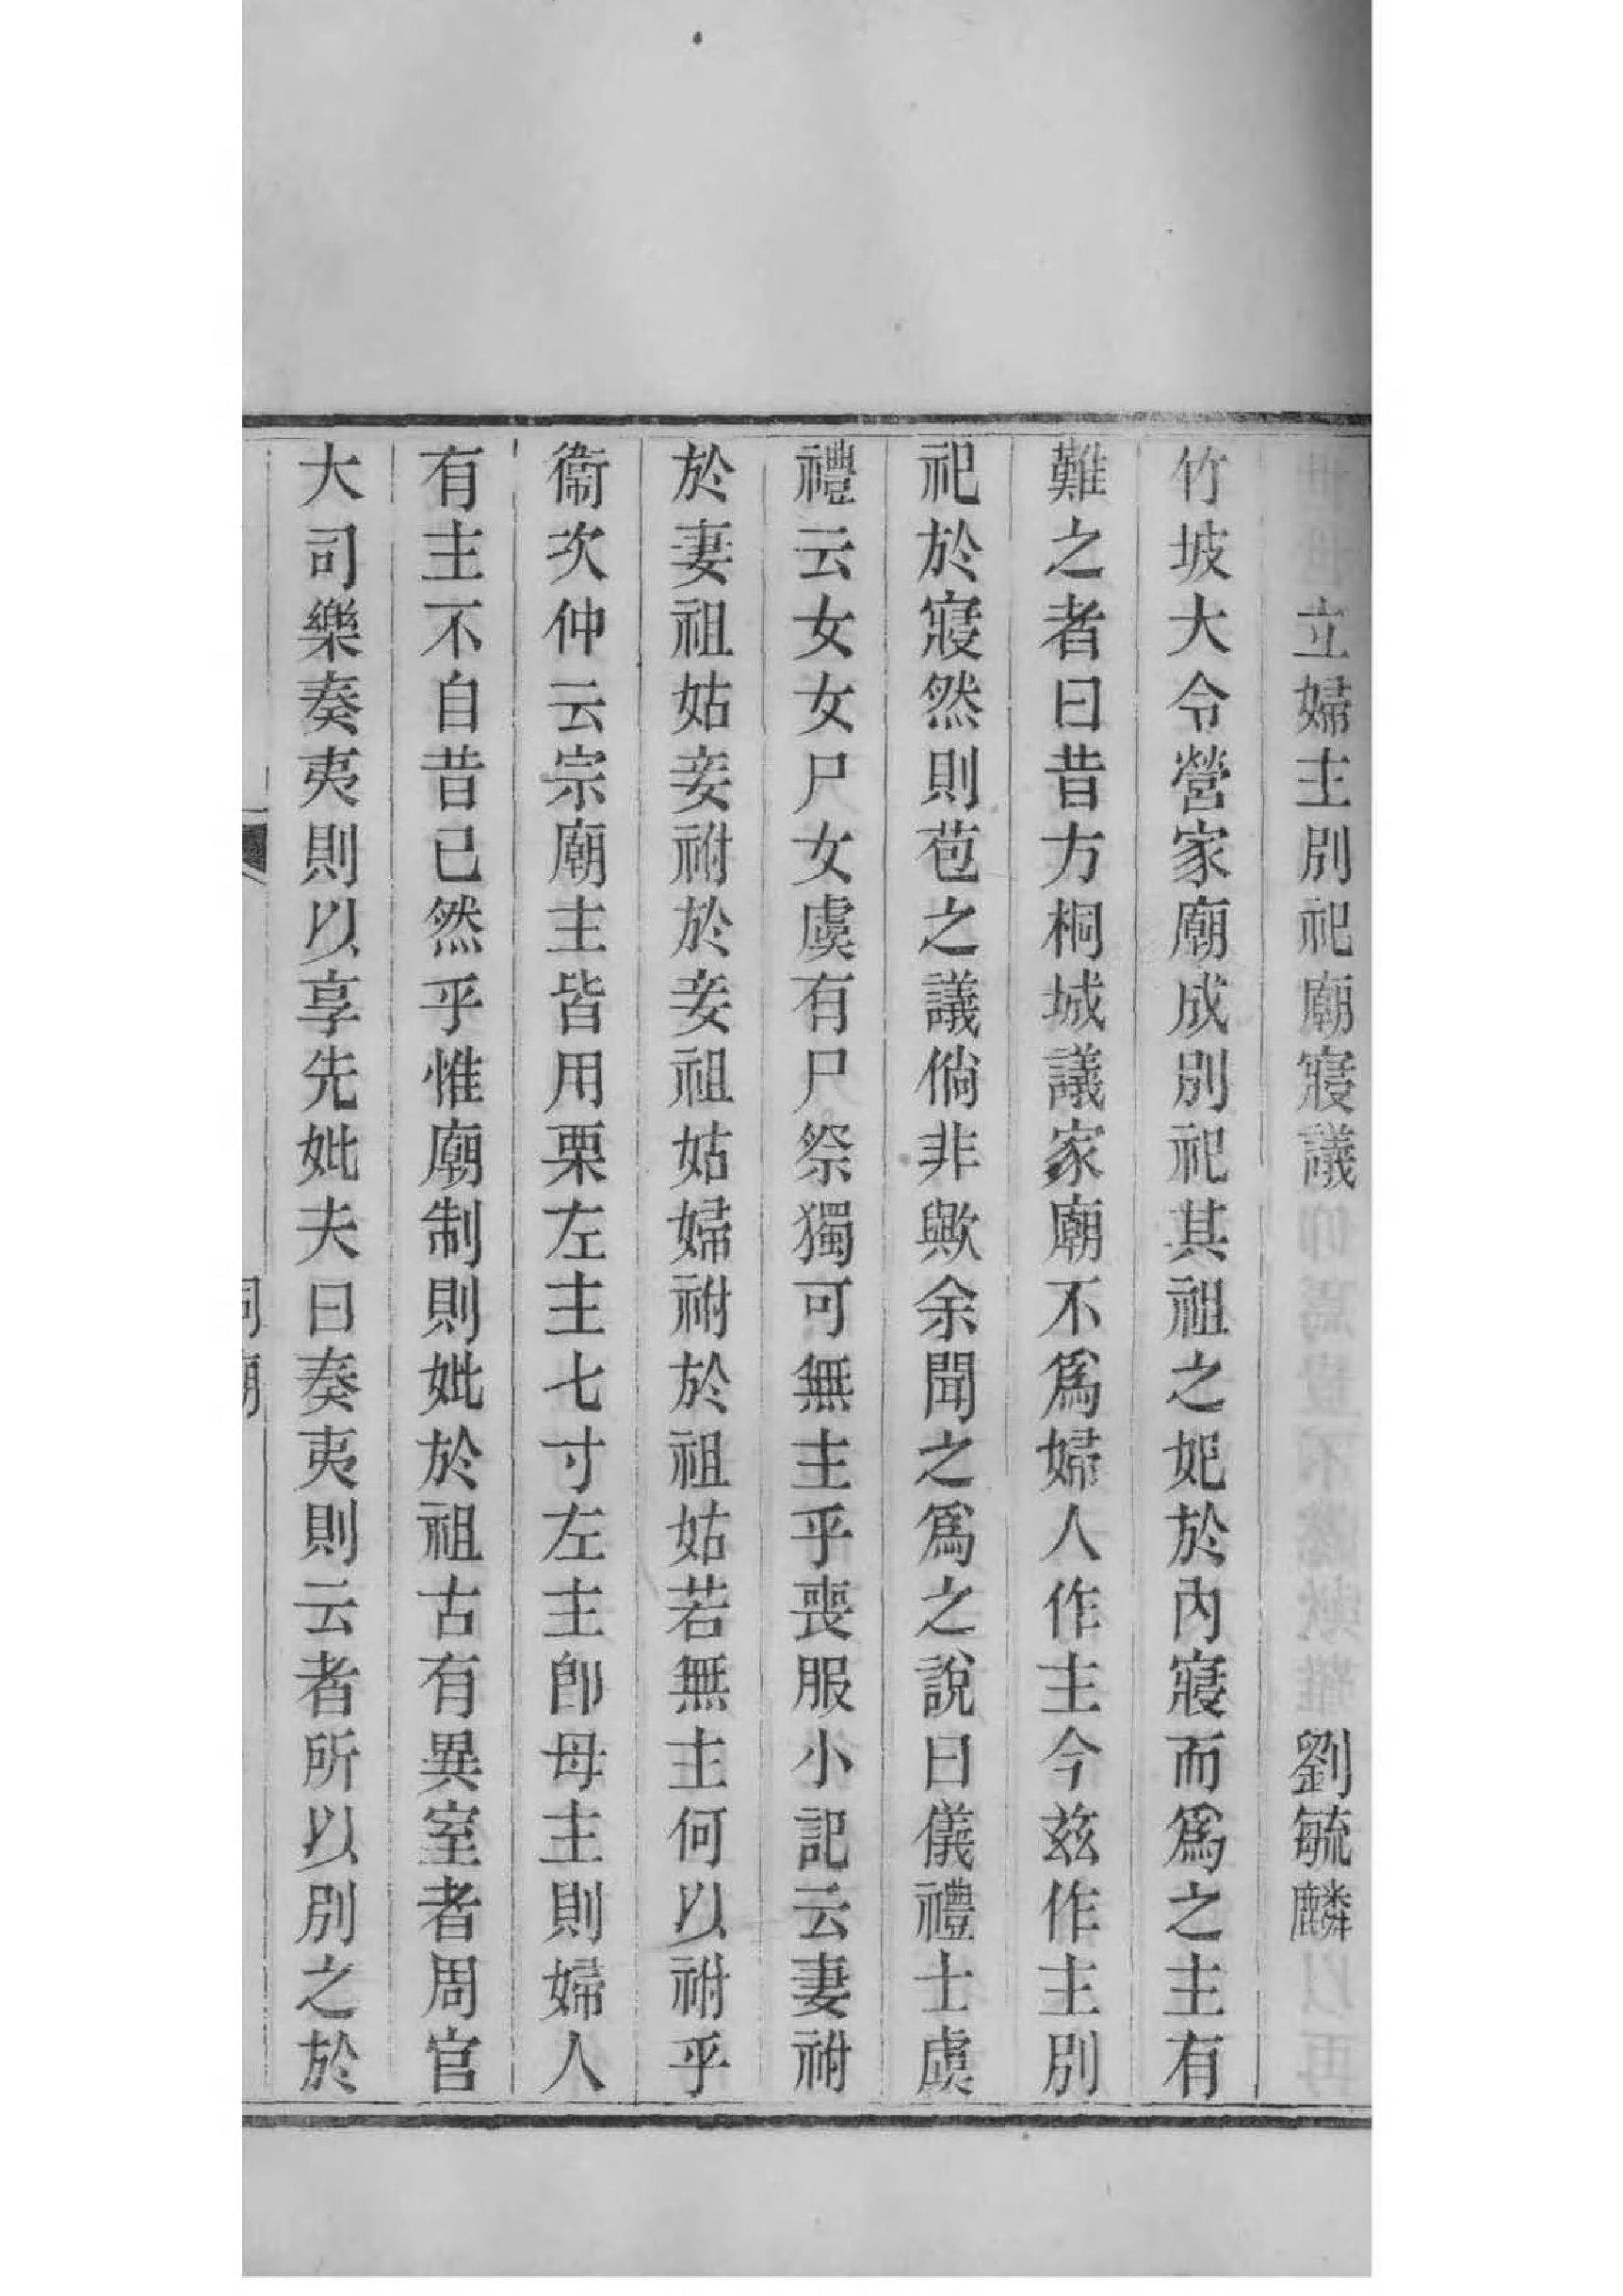 立婦主別祀廟寢議 劉毓麟
竹坡大令營家廟成別祀其祖之妣於內寢而爲之主有
難之者曰昔方桐城議家廟不爲婦人作主今玆作主別
祀於寢然則苞之議倘非歟余聞之爲之說曰儀禮士虞
禮云女女尸女虞有尸祭獨可無主乎喪服小記云妻祔
於妻祖姑妾祔於妾祖姑婦祔於祖姑若無主何以祔乎
衞次仲云宗廟主皆用栗左主七寸左主卽母主則婦人
有主不自昔已然乎惟廟制則妣於祖古有異室者周官
大司樂奏夷則以享先妣夫曰奏夷則云者所以別之於
祠廟